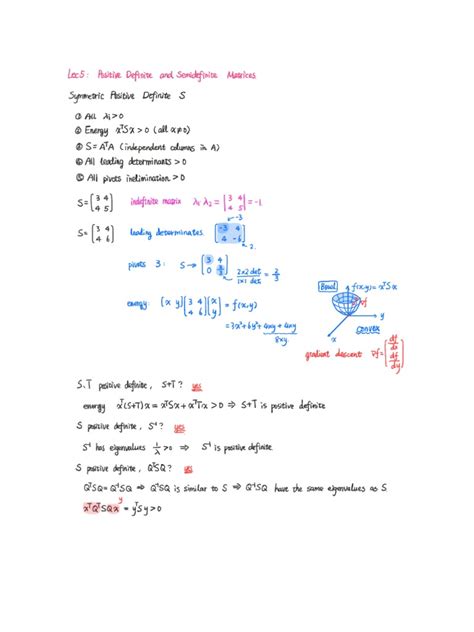 Lec5: Positive Definite and Semidefinite Matrices
Symmetric Positive Definite S
① All λi>0
② Energy xᵀSx>0 (all x≠0)
③ S=AᵀA (independent columns in A)
④ All leading determinants>0
⑤ All pivots inelimination>0
S=[3 4; 4 5] indefinite matrix λ₁λ₂=|3 4; 4 5|=-1
S=[3 4; 4 6] leading determinates [-3 4; 4 -6] -3 2.
pivots 3: S→[3 4; 0 2/3] 2x2 det / 1x1 det = 2/3
energy: [x y][3 4; 4 6][x; y] = f(x,y)
=3x²+6y²+4xy+4xy
8xy.
Bowl f(x,y)=xᵀSx
∇f
y
convex
x
gradient descent ∇f=[df/dx; df/dy]
S.T positive definite, S+T? yes
energy xᵀ(S+T)x=xᵀSx+xᵀTx>0 ⇒ S+T is positive definite
S positive definite, S⁻¹? yes
S⁻¹ has eigenvalues 1/λ>0 ⇒ S⁻¹ is positive definite
S positive definite, QᵀSQ? yes
QᵀSQ=Q⁻¹SQ ⇒ Q⁻¹SQ is similar to S ⇒ Q⁻¹SQ have the same eigenvalues as S.
y
xᵀQᵀSQx=yᵀSy>0